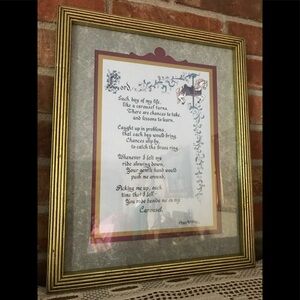 Lord,
Each day of my life,
like a carousel turns.
There are chances to take
and lessons to learn.
Caught up in problems,
that each day would bring,
Chances slip by,
to catch the brass ring.
Whenever I felt my
ride slowing down,
Your gentle hand would
push me around,
Picking me up, each
time that I fell -
You rode beside me on my
Carousel.